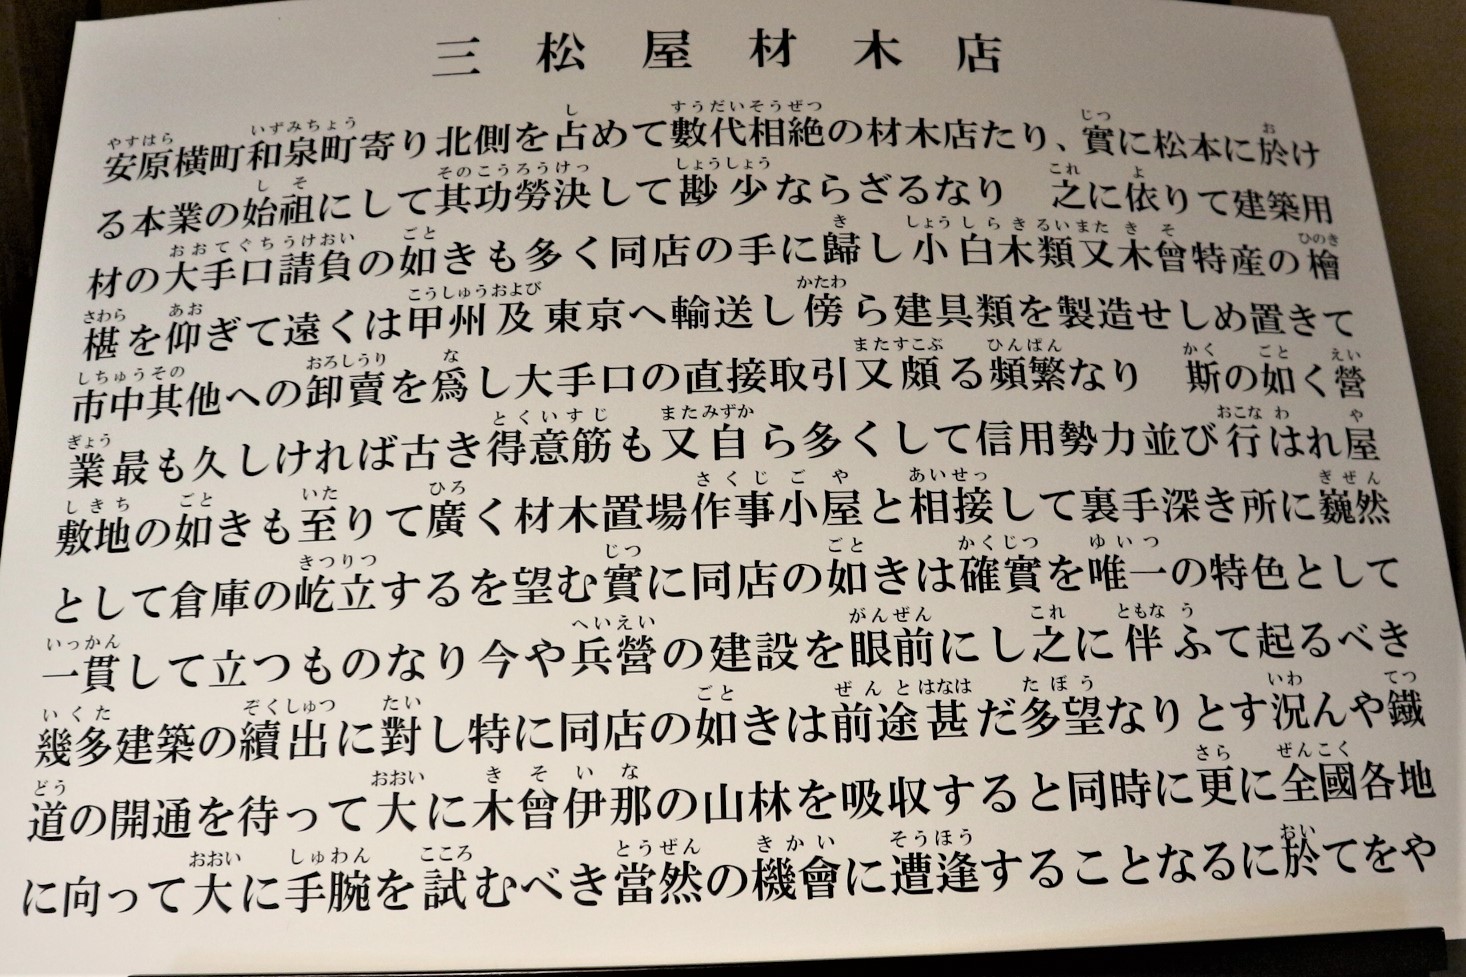 三松屋材木店
安原横町和泉町寄り北側を占めて數代相絶の材木店たり、實に松本に於け
る本業の始祖にして其功勞決して尠少ならざるなり　之に依りて建築用
材の大手口請負の如きも多く同店の手に歸し小白木類又木曾特産の檜
椹を仰ぎて遠くは甲州及東京へ輸送し傍ら建具類を製造せしめ置きて
市中其他への卸賣を爲し大手口の直接取引又頗る頻繁なり　斯の如く營
業最も久しければ古き得意筋も又自ら多くして信用勢力並び行はれ屋
敷地の如きも至りて廣く材木置場作事小屋と相接して裏手深き所に巍然
として倉庫の屹立するを望む實に同店の如きは確實を唯一の特色として
一貫して立つものなり今や兵營の建設を眼前にし之に伴ふて起るべき
幾多建築の續出に對し特に同店の如きは前途甚だ多望なりとす況んや鐵
道の開通を待って大に木曾伊那の山林を吸収すると同時に更に全國各地
に向って大に手腕を試むべき當然の機會に遭逢することなるに於てをや